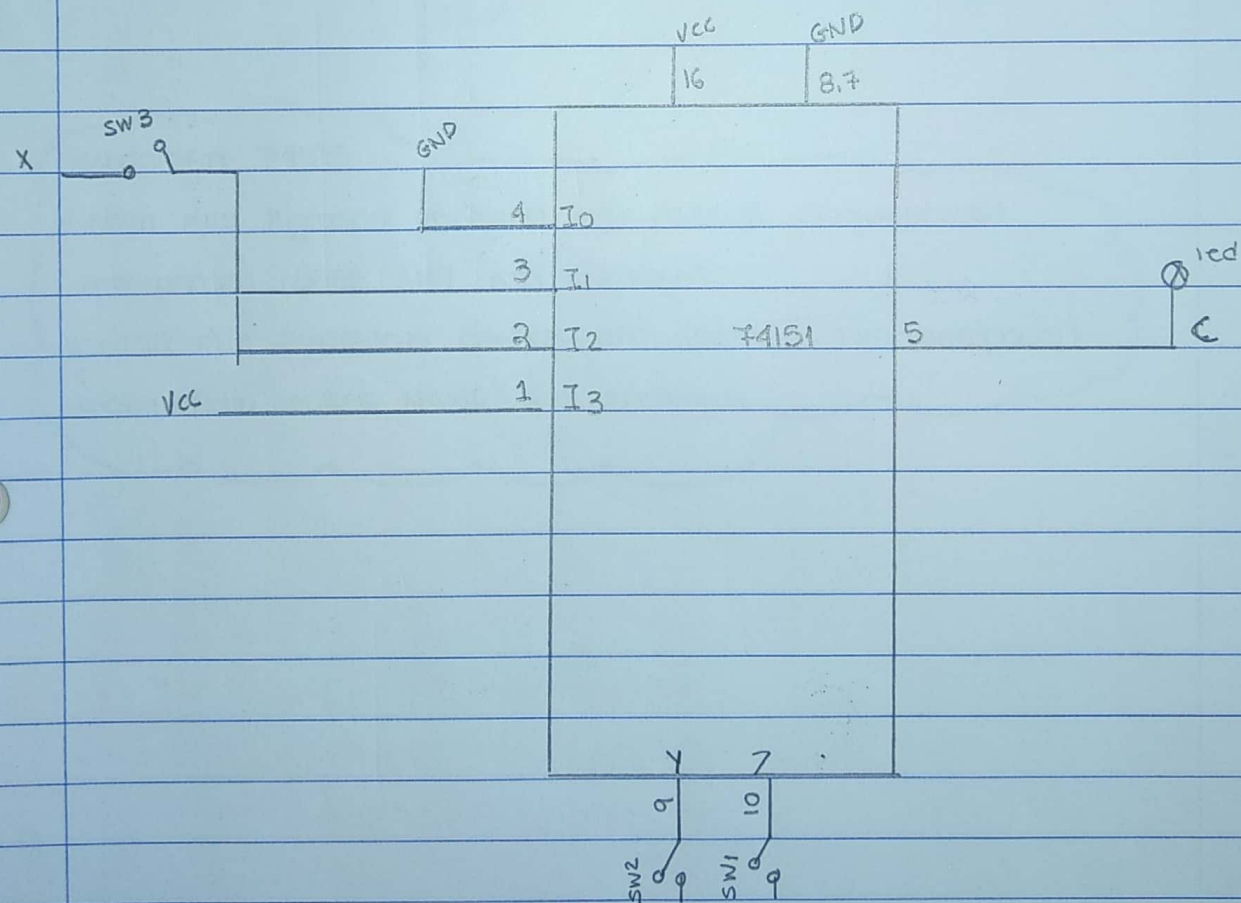 VCC GND
16 8,7
SW3
X
GND
4 I0
3 I1
led
2 I2 74151 5 C
VCC 1 I3
Y Z
9 10
SW2 SW1